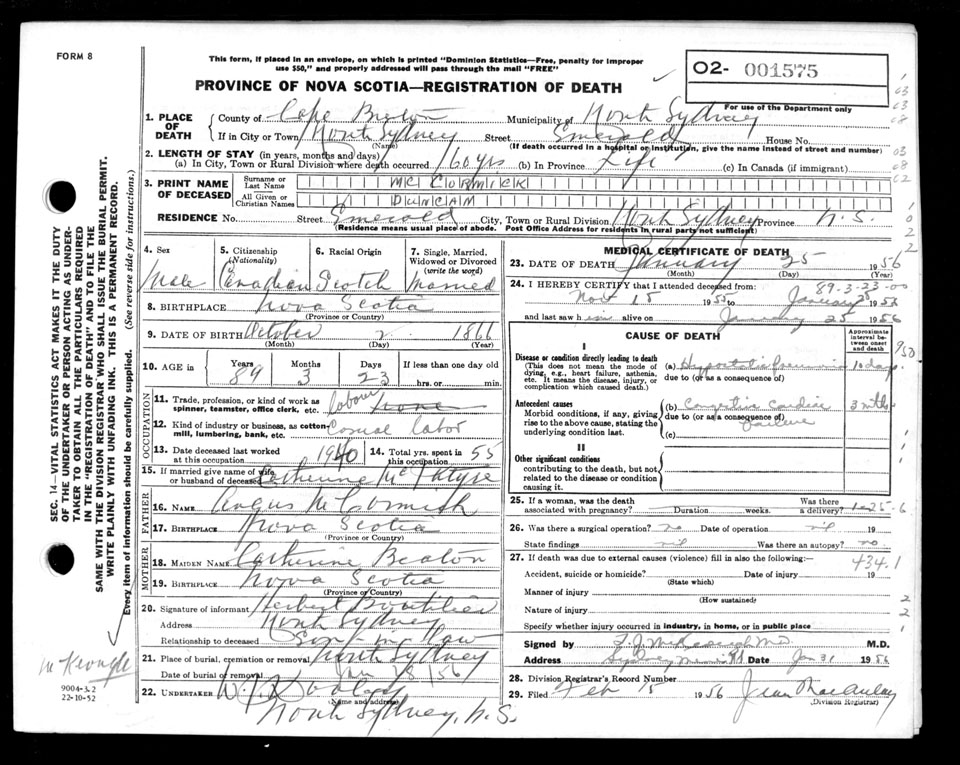 FORM 8
This form, if placed in an envelope, on which is printed "Dominion Statistics—Free, penalty for improper
use $50," and properly addressed will pass through the mail "FREE"
O2- 001575
For use of the Department only
PROVINCE OF NOVA SCOTIA—REGISTRATION OF DEATH
1. PLACE OF DEATH County of Cape Breton Municipality of North Sydney
If in City or Town North Sydney Street Emerald House No.
(Name) (If death occurred in a hospital or institution, give the name instead of street and number)
2. LENGTH OF STAY (in years, months and days)
(a) In City, Town or Rural Division where death occurred 60 yrs (b) In Province Life (c) In Canada (if immigrant)
3. PRINT NAME OF DECEASED Surname or Last Name MC CORMICK
All Given or Christian Names DUNCAN
RESIDENCE No. Street Emerald City, Town or Rural Division North Sydney Province N.S.
(Residence means usual place of abode. Post Office Address for residents in rural parts not sufficient)
4. Sex Male
5. Citizenship (Nationality) Canadian
6. Racial Origin Scotch
7. Single, Married, Widowed or Divorced (write the word) Married
8. BIRTHPLACE Nova Scotia
(Province or Country)
9. DATE OF BIRTH October 2 1866
(Month) (Day) (Year)
10. AGE in Years 89 Months 3 Days 23 If less than one day old
hrs. or min.
OCCUPATION
11. Trade, profession, or kind of work as spinner, teamster, office clerk, etc. labour
12. Kind of industry or business, as cotton mill, lumbering, bank, etc. labor
13. Date deceased last worked at this occupation 1940 14. Total yrs. spent in this occupation 55
15. If married give name of wife or husband of deceased Catherine McIntyre
FATHER
16. NAME Angus McCormick
17. BIRTHPLACE Nova Scotia
(Province or Country)
MOTHER
18. MAIDEN NAME Catherine Beaton
19. BIRTHPLACE Nova Scotia
(Province or Country)
20. Signature of informant Herbert Boutilier
Address North Sydney
Relationship to deceased Son in law
21. Place of burial, cremation or removal North Sydney
Date of burial or removal Jan 28/56
22. UNDERTAKER
(Name and address)
North Sydney, N.S.
MEDICAL CERTIFICATE OF DEATH
23. DATE OF DEATH January 25 1956
(Month) (Day) (Year)
89-3-23-00
24. I HEREBY CERTIFY that I attended deceased from:
Nov 15 1955 to January 1956
and last saw him alive on January 25 1956
CAUSE OF DEATH
Approximate interval between onset and death
I
Disease or condition directly leading to death
(This does not mean the mode of dying, e.g., heart failure, asthenia, etc. It means the disease, injury, or complication which caused death.)
(a) Hypostatic Pneumonia 10 days
due to (or as a consequence of)
Antecedent causes
Morbid conditions, if any, giving rise to the above cause, stating the underlying condition last.
(b) Congestive Cardiac failure 3 mths
due to (or as a consequence of)
(c)
II
Other significant conditions
contributing to the death, but not related to the disease or condition causing it.
25. If a woman, was the death associated with pregnancy? Duration weeks. Was there a delivery?
26. Was there a surgical operation? no Date of operation nil 19
State findings nil Was there an autopsy? no
27. If death was due to external causes (violence) fill in also the following:—
434.1
Accident, suicide or homicide? Date of injury 19
(State which)
Manner of injury
(How sustained)
Nature of injury
Specify whether injury occurred in industry, in home, or in public place
Signed by M.D.
Address Sydney Mines N.S. Date Jan 31 1956
28. Division Registrar's Record Number
29. Filed Feb 15 1956 Jean MacAulay
(Division Registrar)
SEC. 14—VITAL STATISTICS ACT MAKES IT THE DUTY
OF THE UNDERTAKER OR PERSON ACTING AS UNDER-
TAKER TO OBTAIN ALL THE PARTICULARS REQUIRED
IN THE "REGISTRATION OF DEATH" AND TO FILE THE
SAME WITH THE DIVISION REGISTRAR WHO SHALL ISSUE THE BURIAL PERMIT.
WRITE PLAINLY WITH UNFADING INK. THIS IS A PERMANENT RECORD.
Every item of information should be carefully supplied. (See reverse side for instructions.)
9004-3.2
22-10-52